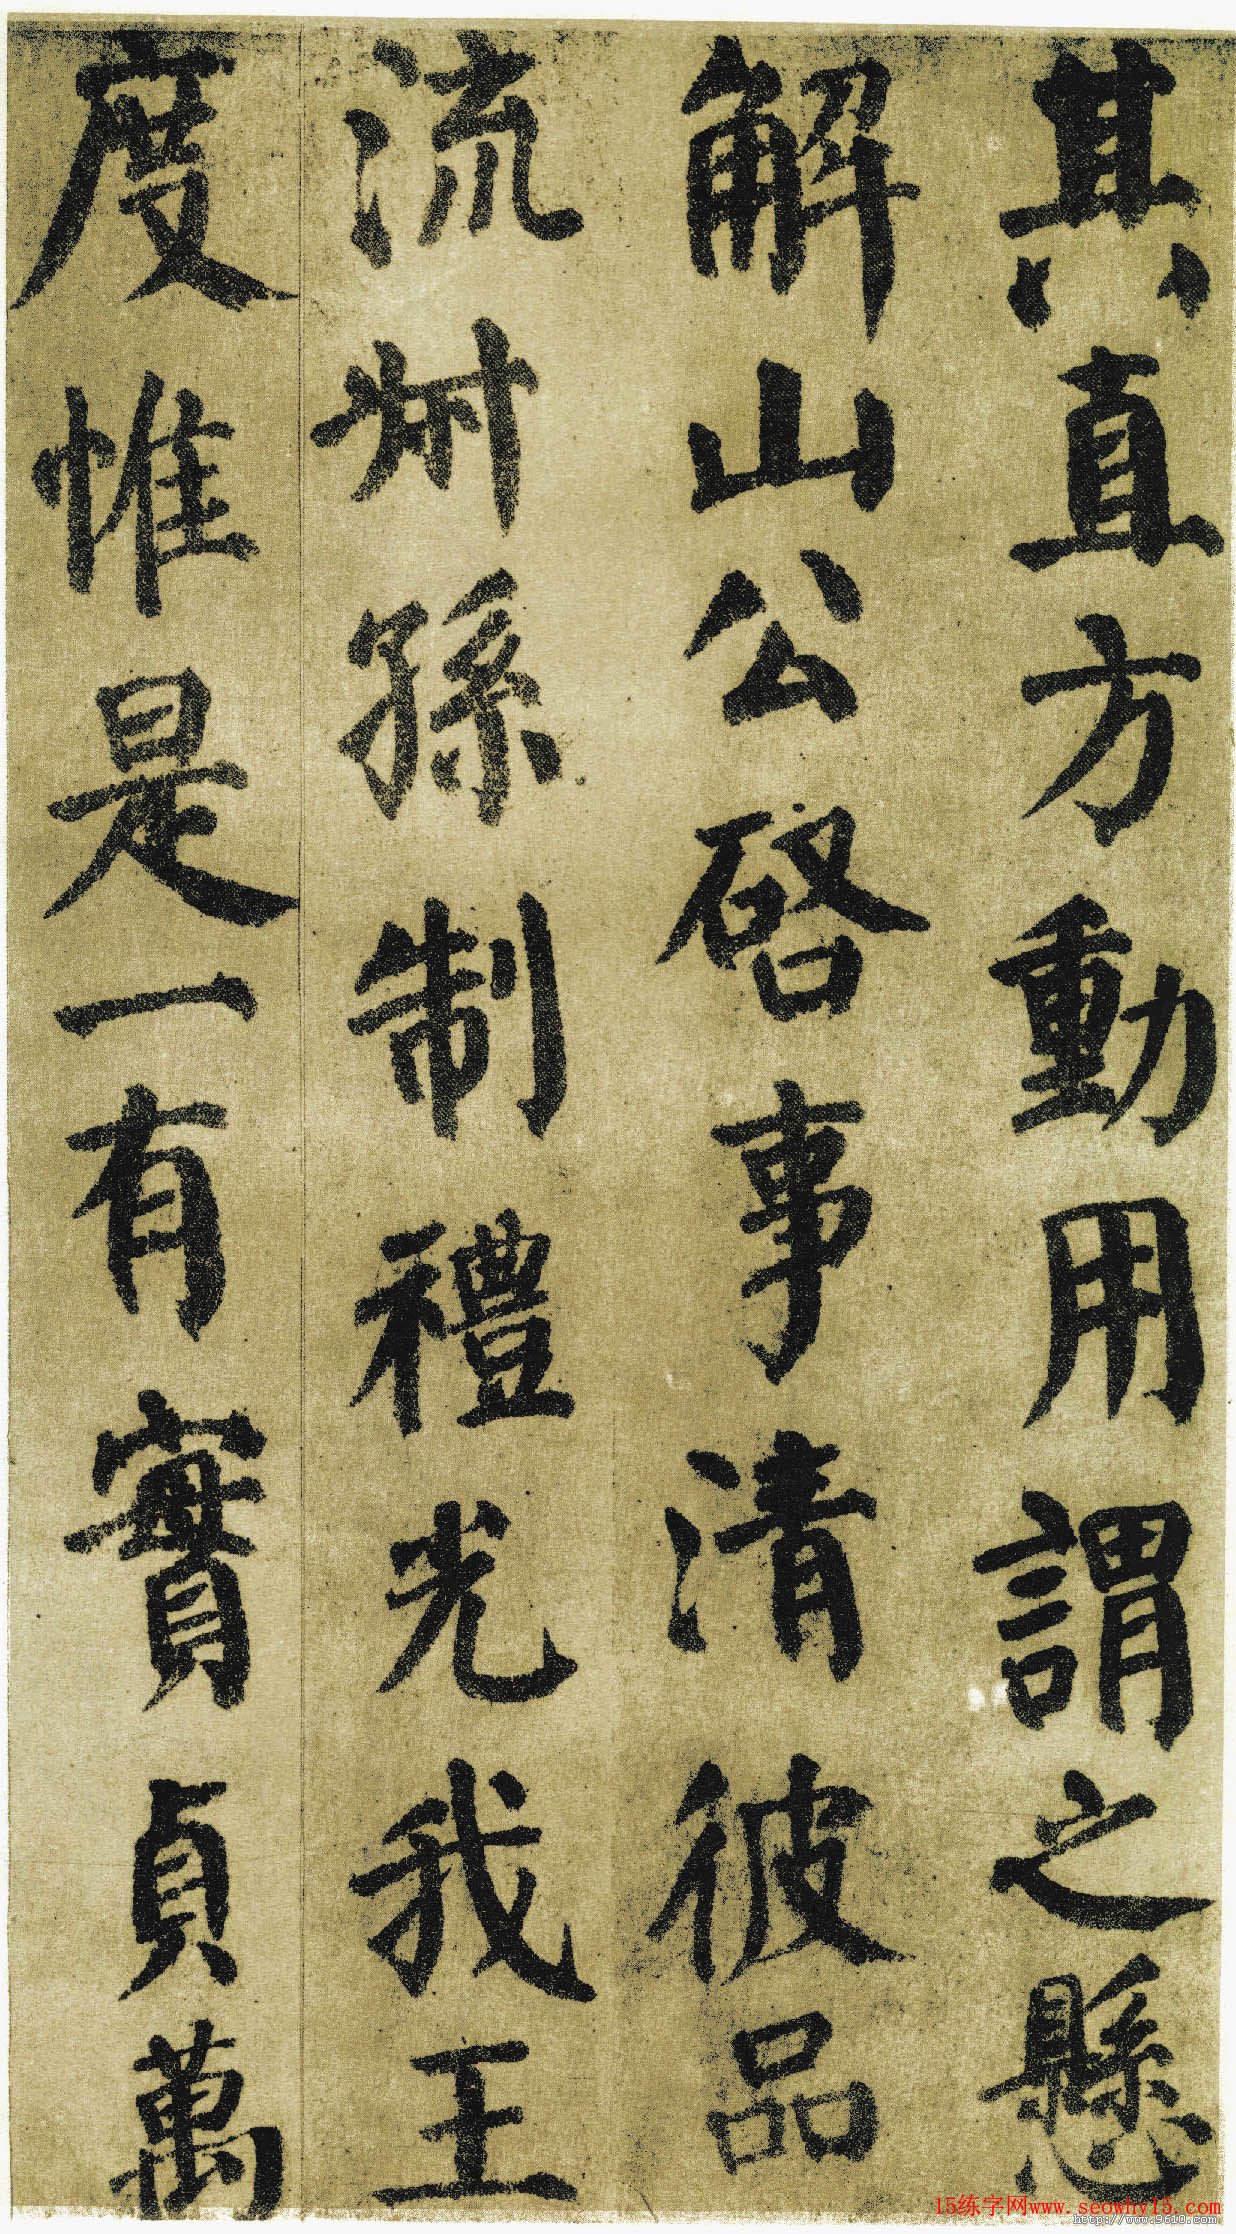 其直方動用謂之懸
解山公啓事清彼品
流叔孫制禮光我王
度惟是一有實貞萬
15练字网www.seowhy15.com
http://www.9610.com